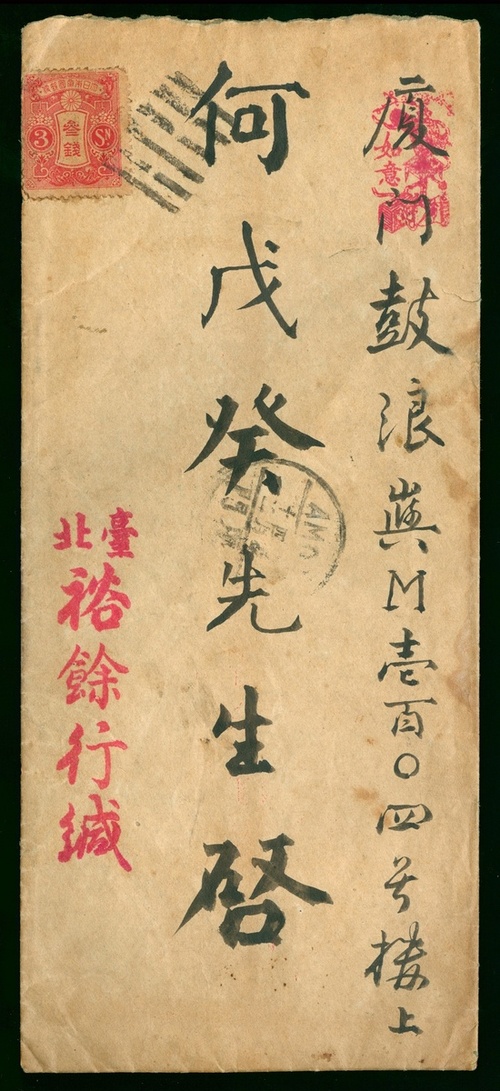 廈門鼓浪嶼門壱百〇四号楼上
如意
何戊癸先生啓
AMOY
大日本帝國郵便
3
叁錢
Sn
臺北
裕餘行緘